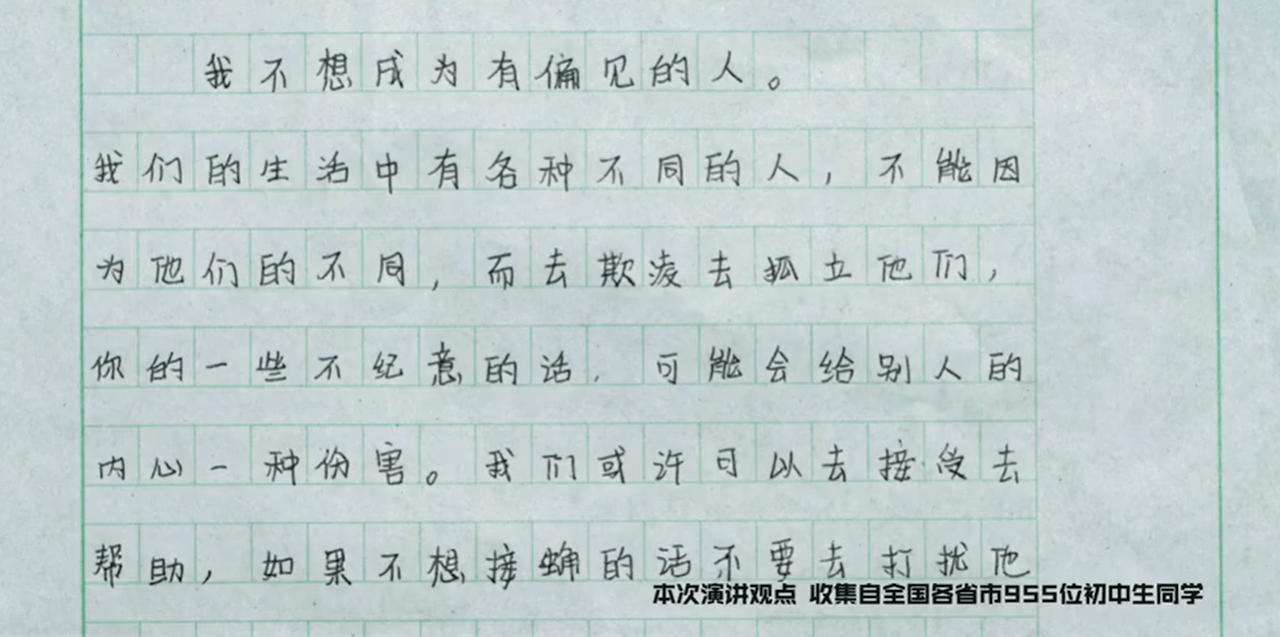 我不想成为有偏见的人。
我们的生活中有各种不同的人，不能因
为他们的不同，而去欺凌去孤立他们，
你的一些不纪意的话，可能会给别人的
内心一种份害。我们或许可以去接受去
帮助，如果不想接蛹的话不要去打扰他
本次演讲观点 收集自全国各省市955位初中生同学